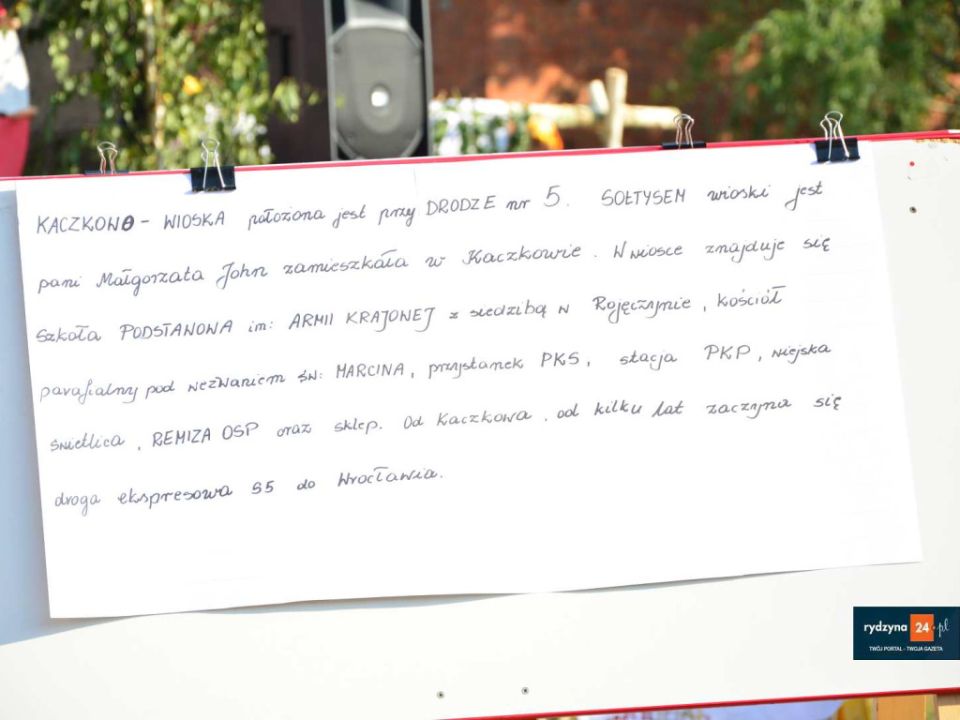 KACZKOWO - WIOSKA położona jest przy DRODZE nr 5. SOŁTYSEM wioski jest
pani Małgorzata John zamieszkała w Kaczkowie. W wiosce znajduje się
szkoła PODSTAWOWA im: ARMII KRAJOWEJ z siedzibą w Rojęczynie, kościół
parafialny pod wezwaniem św: MARCINA, przystanek PKS, stacja PKP, wiejska
świetlica, REMIZA OSP oraz sklep. Od Kaczkowa, od kilku lat zaczyna się
droga ekspresowa S5 do Wrocławia.
rydzyna 24.pl
TWÓJ PORTAL - TWOJA GAZETA